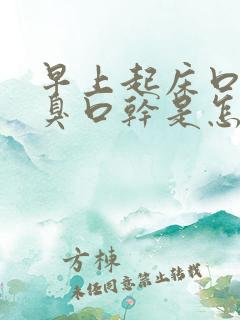 早上起床口
臭口幹是怎
方棟
未经同意禁止转载